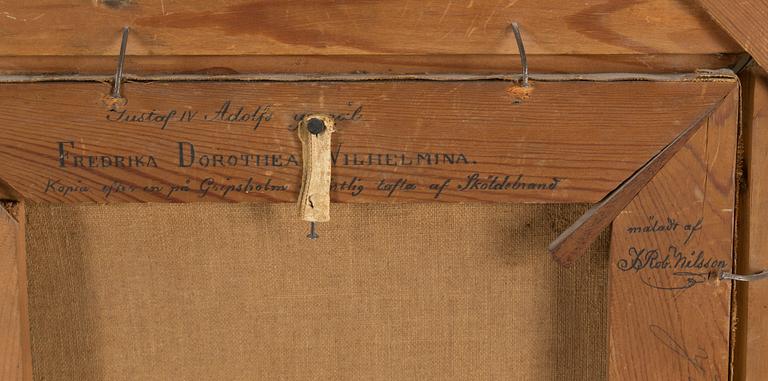 Gustaf IV Adolfs
FREDRIKA DOROTHEA WILHELMINA.
Kopia efter en på Gripsholm tafla af Sköldebrand
måladt af
Rob. Nilsson